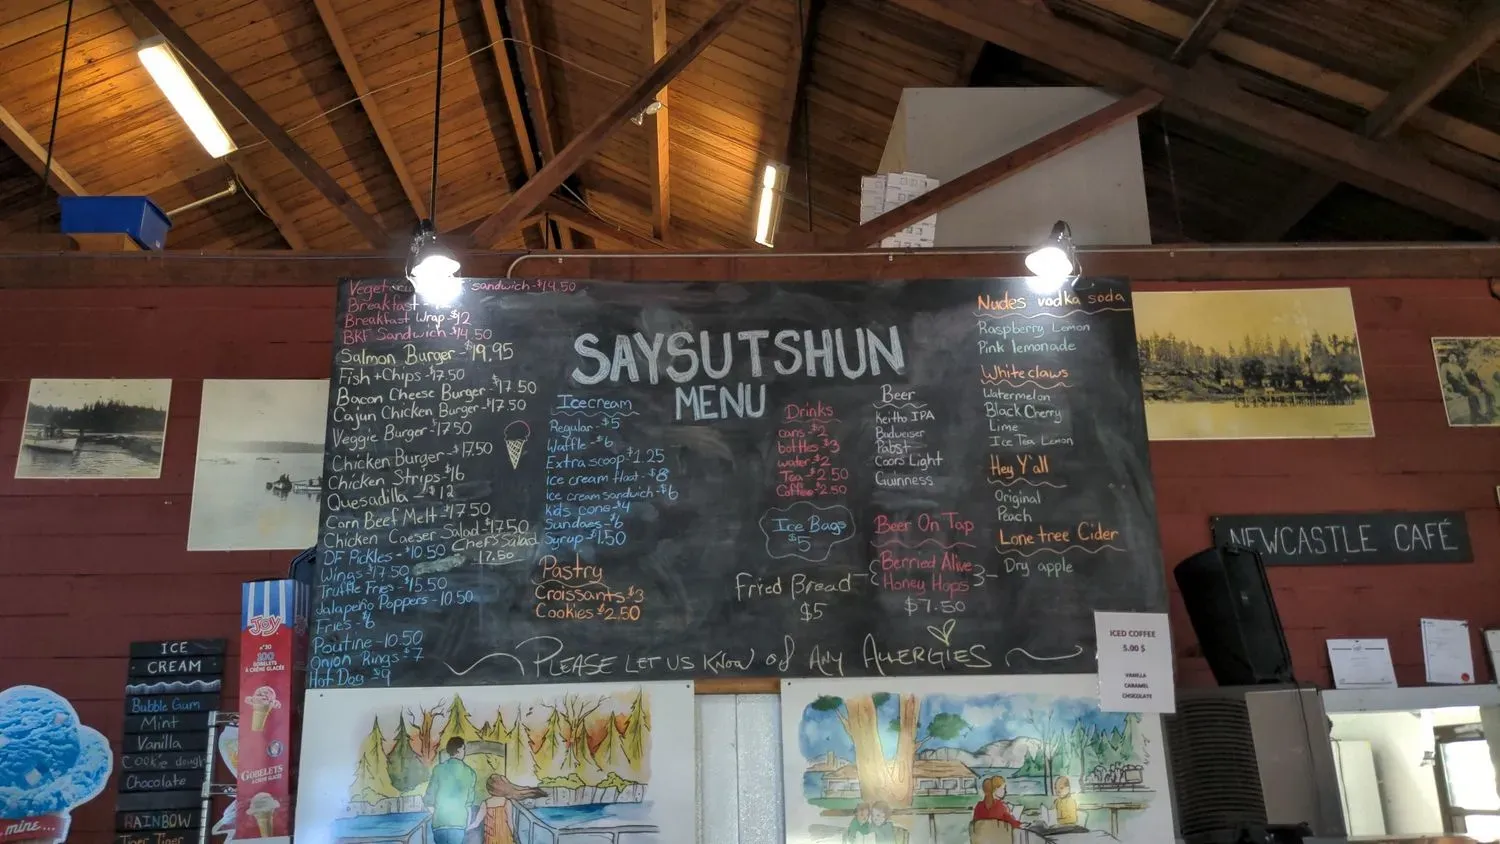 sandwich-$14.50
Breakfast
Breakfast Wrap $12
BKF Sandwich-$14.50
Salmon Burger-$19.95
Fish+Chips-$17.50
Bacon Cheese Burger-$17.50
Cajun Chicken Burger-$17.50
Veggie Burger-$17.50
Chicken Burger-$17.50
Chicken Strips-$16
Quesadilla-$12
Corn Beef Melt-$17.50
Chicken Caeser Salad-$17.50
Chef's Salad
17.50
DF Pickles-$10.50
Wings-$17.50
Truffle Fries-$15.50
Jalapeño Poppers-10.50
Fries-$6
Poutine-10.50
Onion Rings-$7
Hot Dog-$9
SAYSUTSHUN
MENU
Icecream
Regular-$5
Waffle-$6
Extra scoop-$1.25
Ice cream float-$8
Ice cream sandwich-$6
kids cone-$4
Sundaes-$6
Syrup-$1.50
Pastry
Croissants-$3
Cookies $2.50
Drinks
cans-$2
bottles-$3
water-$2
Tea-$2.50
Coffee-$2.50
Ice Bags
$5
Fried Bread
$5
Beer
Keitho IPA
Budweiser
Pabst
Coors Light
Guinness
Beer On Tap
Berried Alive
Honey Hops
$7.50
Nudes vodka soda
Raspberry Lemon
Pink lemonade
Whiteclaws
Watermelon
Black Cherry
Lime
Ice Tea Lemon
Hey Y'all
Original
Peach
Lonetree Cider
Dry apple
PLEASE LET US KNOW of ANY ALLERGIES
NEWCASTLE CAFÉ
ICED COFFEE
5.00 $
VANILLA
CARAMEL
CHOCOLATE
ICE
CREAM
Bubble Gum
Mint
Vanilla
Cookie dough
Chocolate
RAINBOW
Tiger Tiger
JOY
100
GOBELETS
À CRÈME GLACÉE
GOBELETS
À CRÈME GLACÉE
mine...